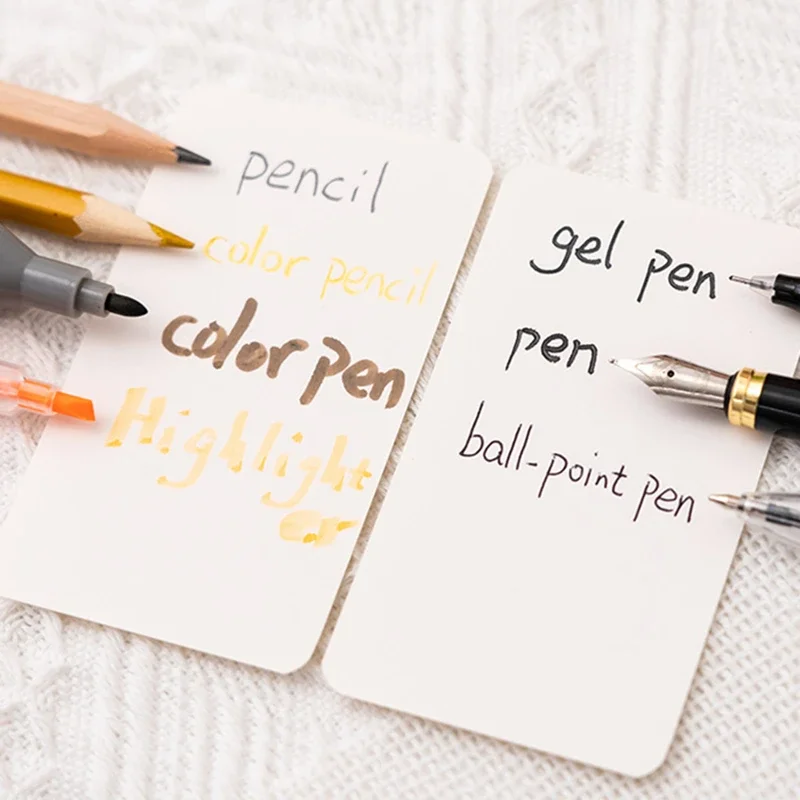 pencil
color pencil
color pen
Highlight
er
gel pen
pen
ball-point pen